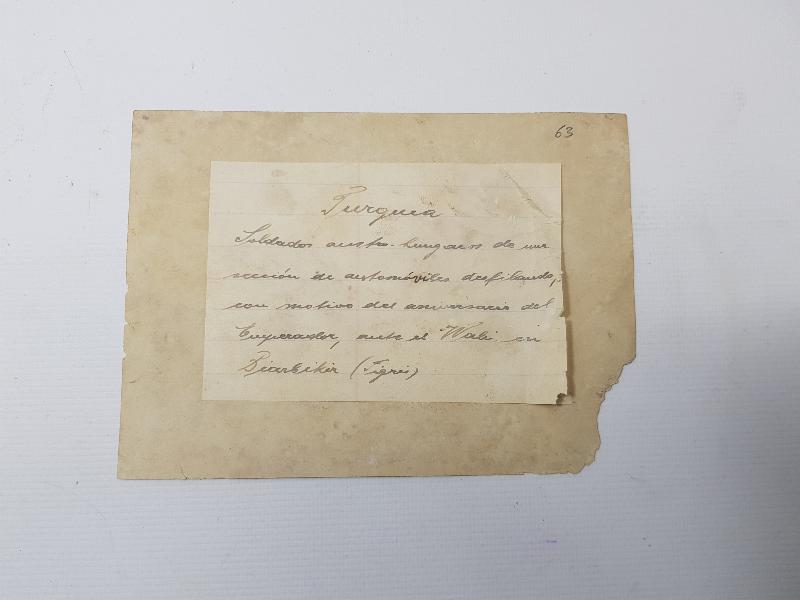 63
Turquia
Soldados austro-hungaros de una
sección de automóviles desfilando,
con motivo del aniversario del
Emperador, ante el Wali en
Diarbikir (Tigris)